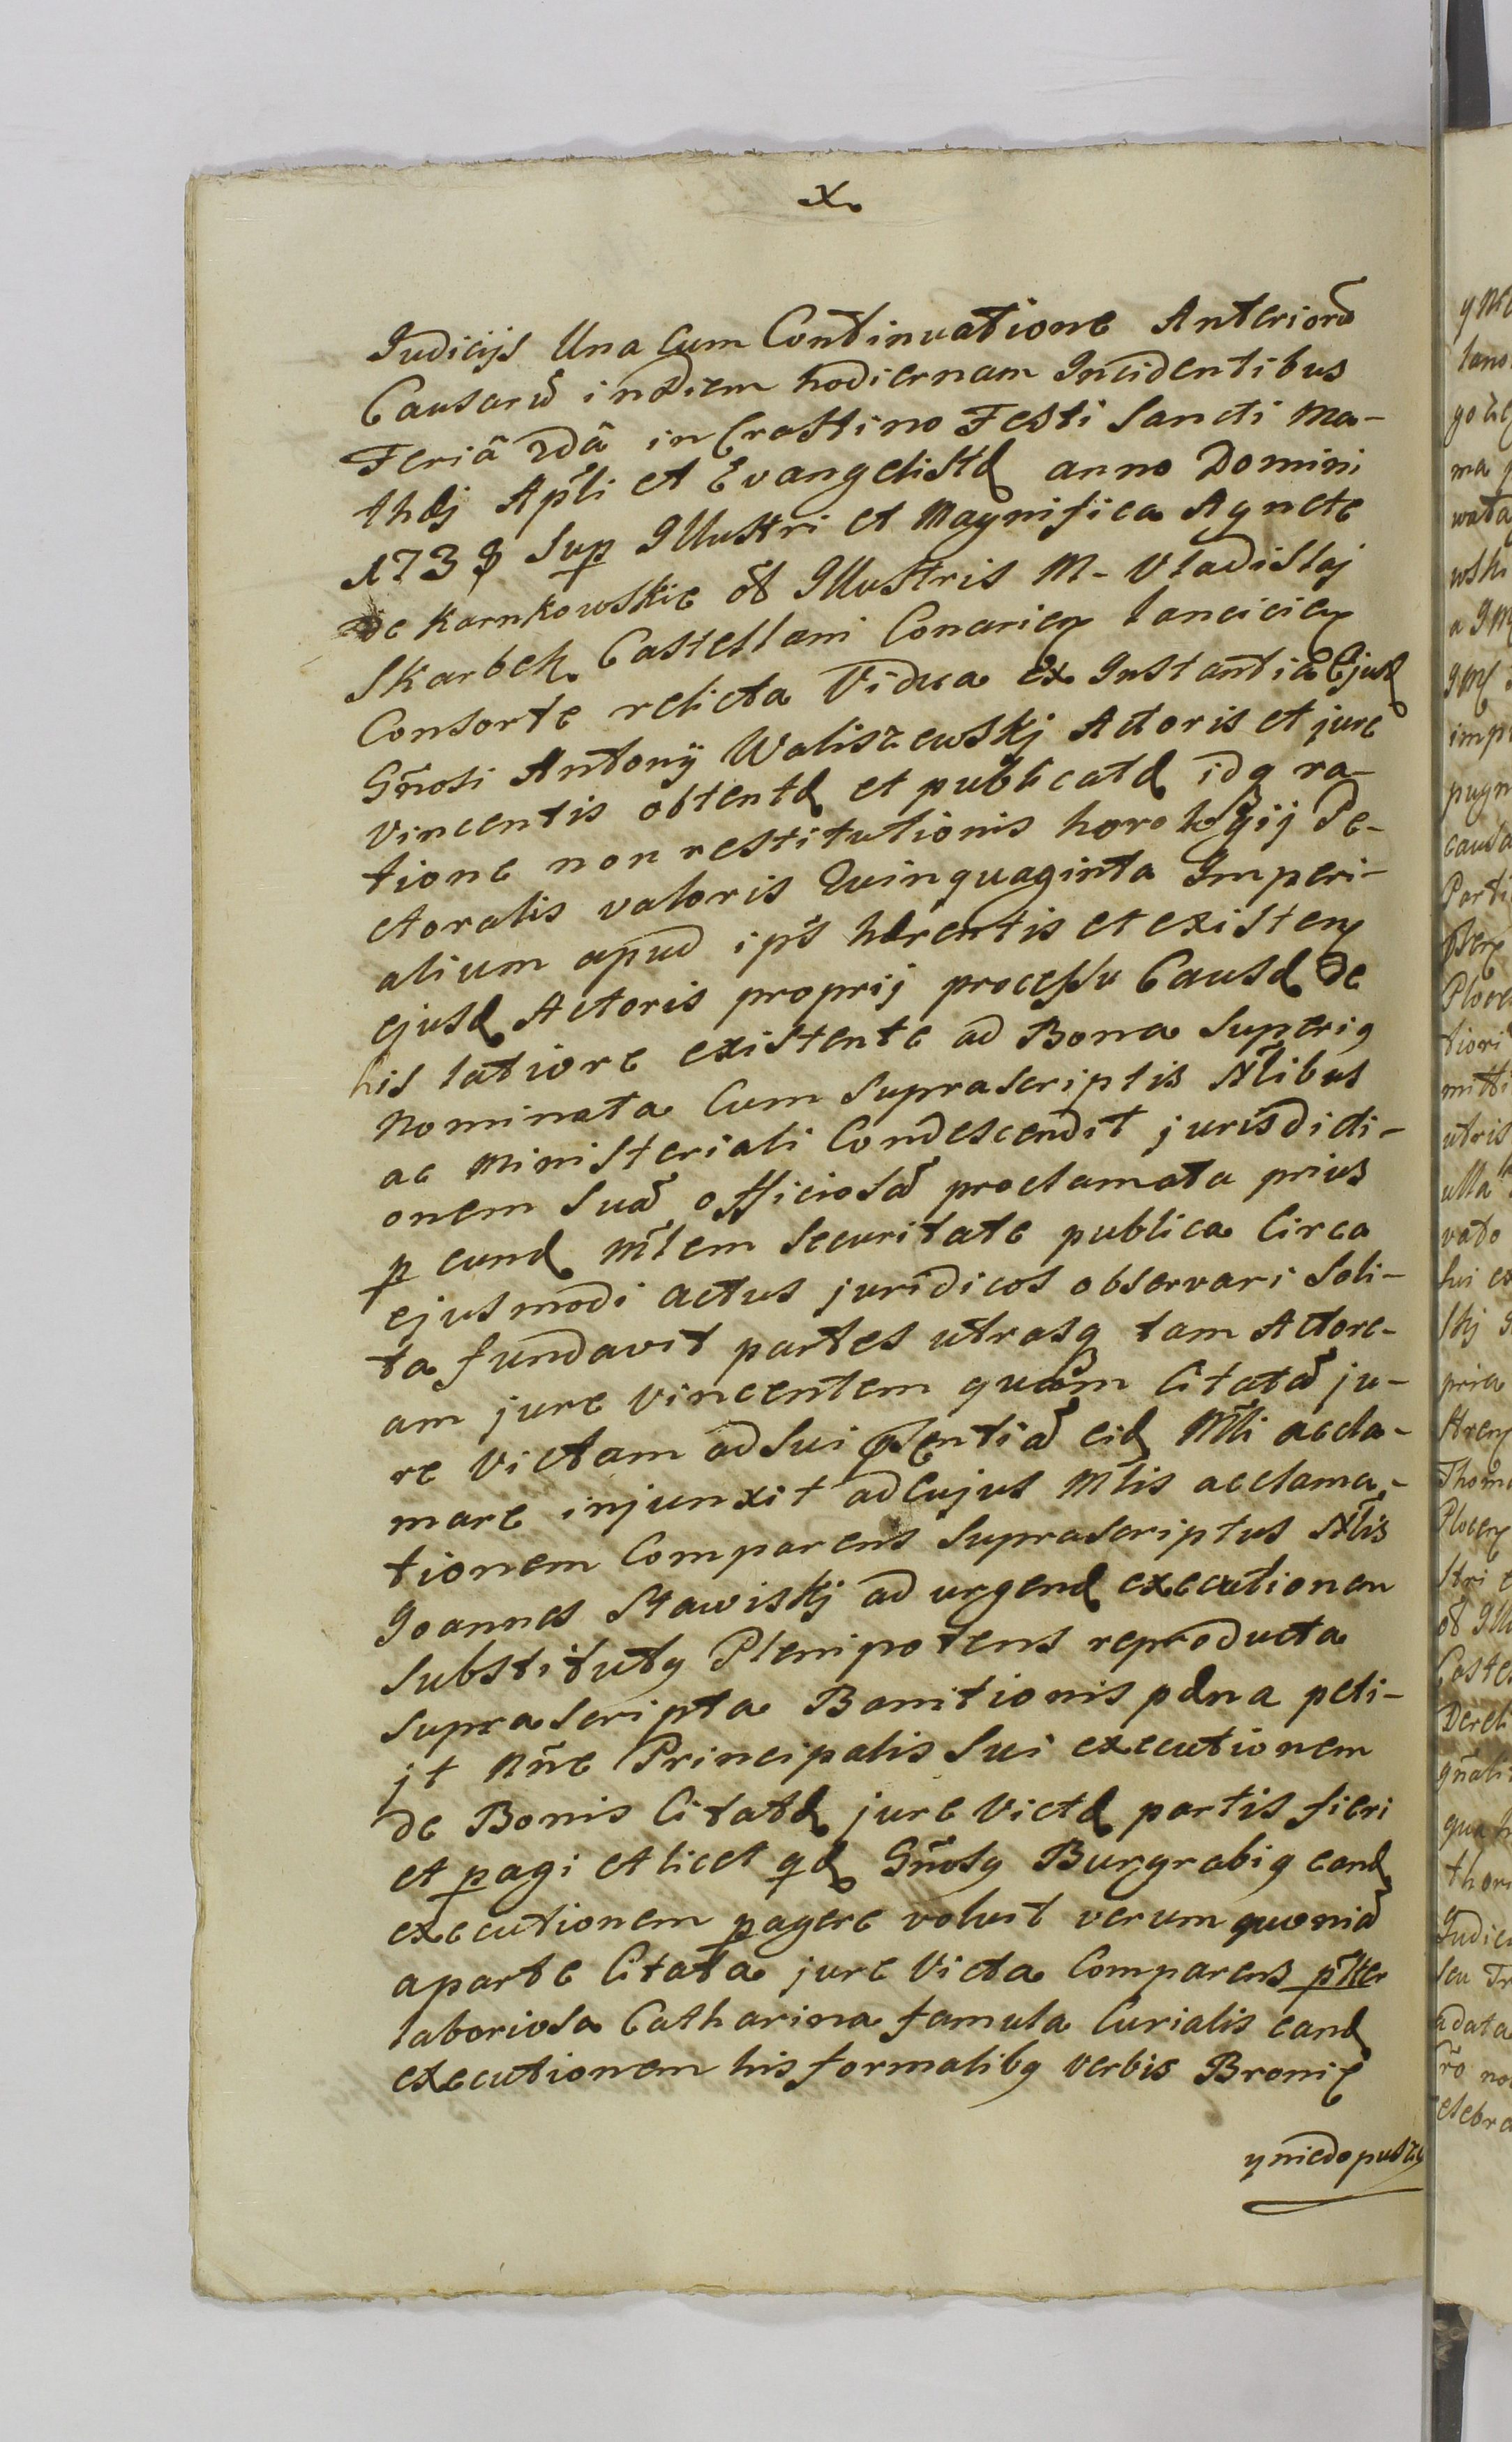 x.
Judicijs Una Cum Continuatione Anteriorũ
Causarũ in diem hodiernam Incidentibus
Feriâ 2dâ in Crastino Festi Sancti Ma-
thæj Apłi et Evangelistæ anno Domini
1738 Sup Illustri et Magnifica Agnete
de Karnkowskie ol Illustris M. Vladislaj
Skarbek Castellani Conarien Lancicien
Consorte relicta Vidua Ex Instantia Ejusd
Gñosi Antonÿ Waliszewskj Actoris et jure
Vincentis obtentæ et publicatæ idq ra-
tione non restitutionis horologij Pe-
ctoralis valoris Quinquaginta Imperi-
alium apud ips hærentis et existen
ejusd Actoris proprij processu Causæ de
his latiore existente ad Bona Superiq
Nominata Cum Suprascriptis Nłibus
ac Ministeriali Condescendit jurisdicti-
onem Suã officiosã proclamata prius
p eund Młem Securitate publica Circa
ejusmodi actus juridicos observari Soli-
ta fundavit partes utrasq tam Actore-
am jure Vincentem quam Citatã ju-
re Victam ad Sui psentiã eid Młi accla-
mare injunxit ad Cujus Młis acclama-
tionem Comparens Suprascriptus Nłis
Joannes Stawiskj ad urgend executionem
Substitutq Plenipotens reproducta
Suprascripta Banitionis pæna peti-
jt Nñe Principalis Sui executionem
de Bonis Citatæ jure Victæ partis fieri
et pagi et licet qd Gñosq Burgrabiq eand
executionem pagere voluit verum quoniã
aparte Citata jure Victa Comparens ptter
laboriosa Catharina famula Curialis eand
executionem his formalibq verbis Bronię
yniedopuszcz